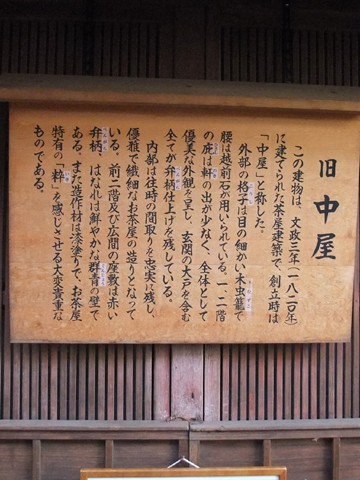 旧中屋
この建物は、文政三年（一八二〇年）
に建てられた茶屋建築で、創立時は
「中屋」と称した。
外部の格子は目の細かい木虫籠で
腰は越前石が用いられている。一、二階
の庇は軒の出が少なく、全体として
優美な外観を呈し、玄関の大戸を含む
全てが弁柄仕上げを残している。
内部は往時の間取りを忠実に残し、
優雅で繊細なお茶屋の造りとなって
いる。前二階及び広間の座敷は赤い
弁柄、はなれは鮮やかな群青の壁で
ある。また造作材は漆塗りで、お茶屋
特有の「粋」を感じさせる大変貴重な
ものである。